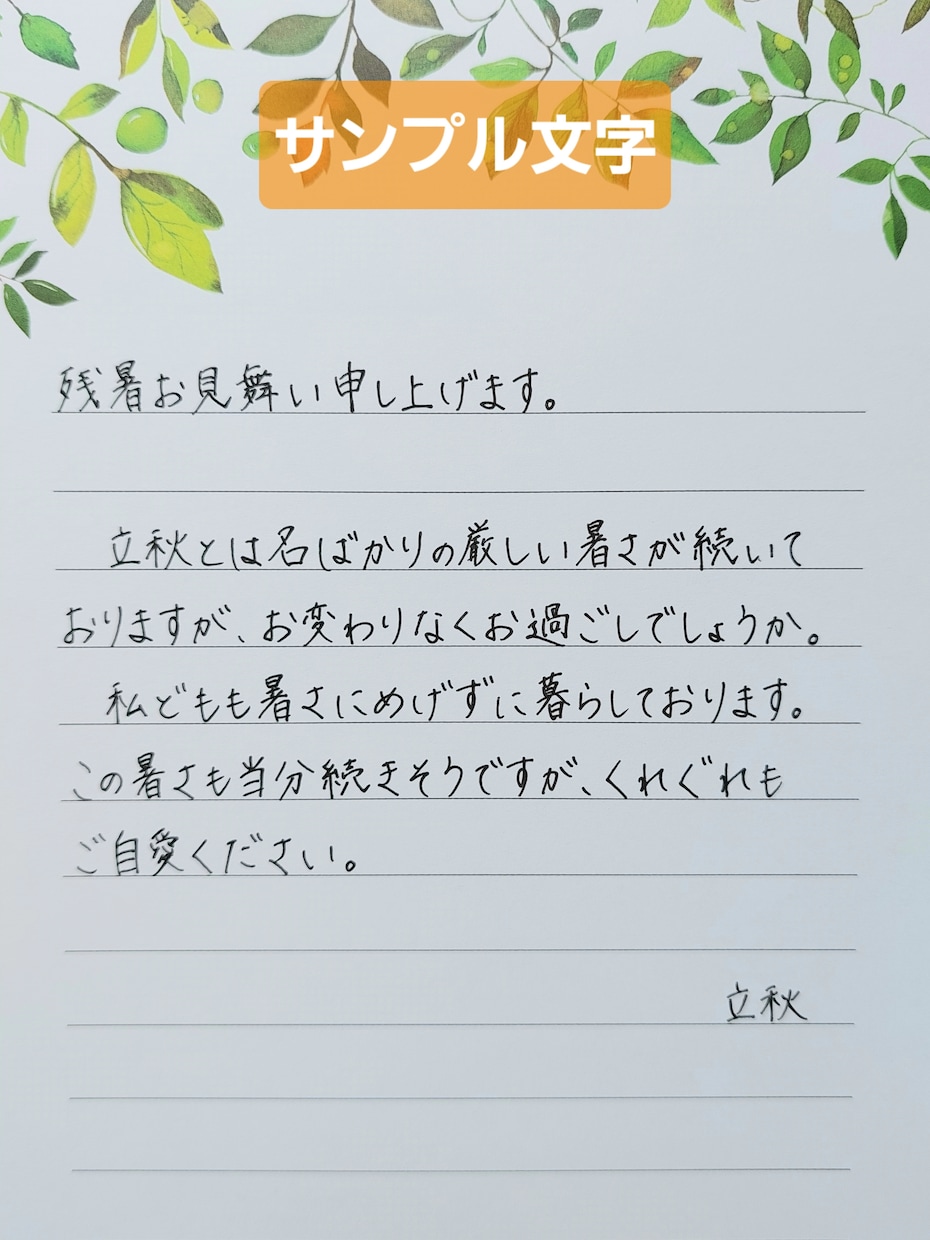 サンプル文字
残暑お見舞い申し上げます。
　立秋とは名ばかりの厳しい暑さが続いて
おりますが、お変わりなくお過ごしでしょうか。
　私どもも暑さにめげずに暮らしております。
この暑さも当分続きそうですが、くれぐれも
ご自愛ください。
立秋